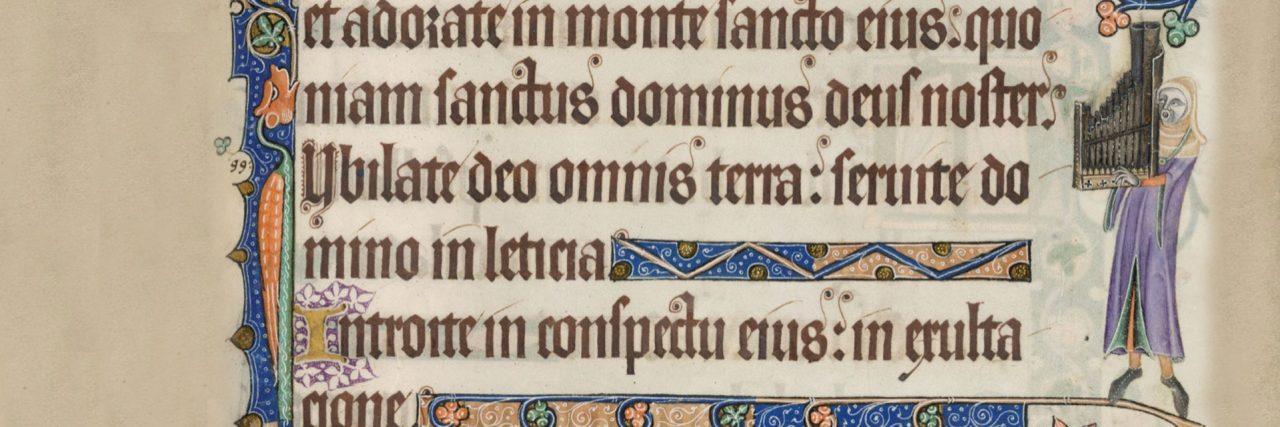 et adorate in monte sancto eius: quo
niam sanctus dominus deus noster:
99
Iubilate deo omnis terra: seruite do
mino in leticia
Introite in conspectu eius: in exulta
cione